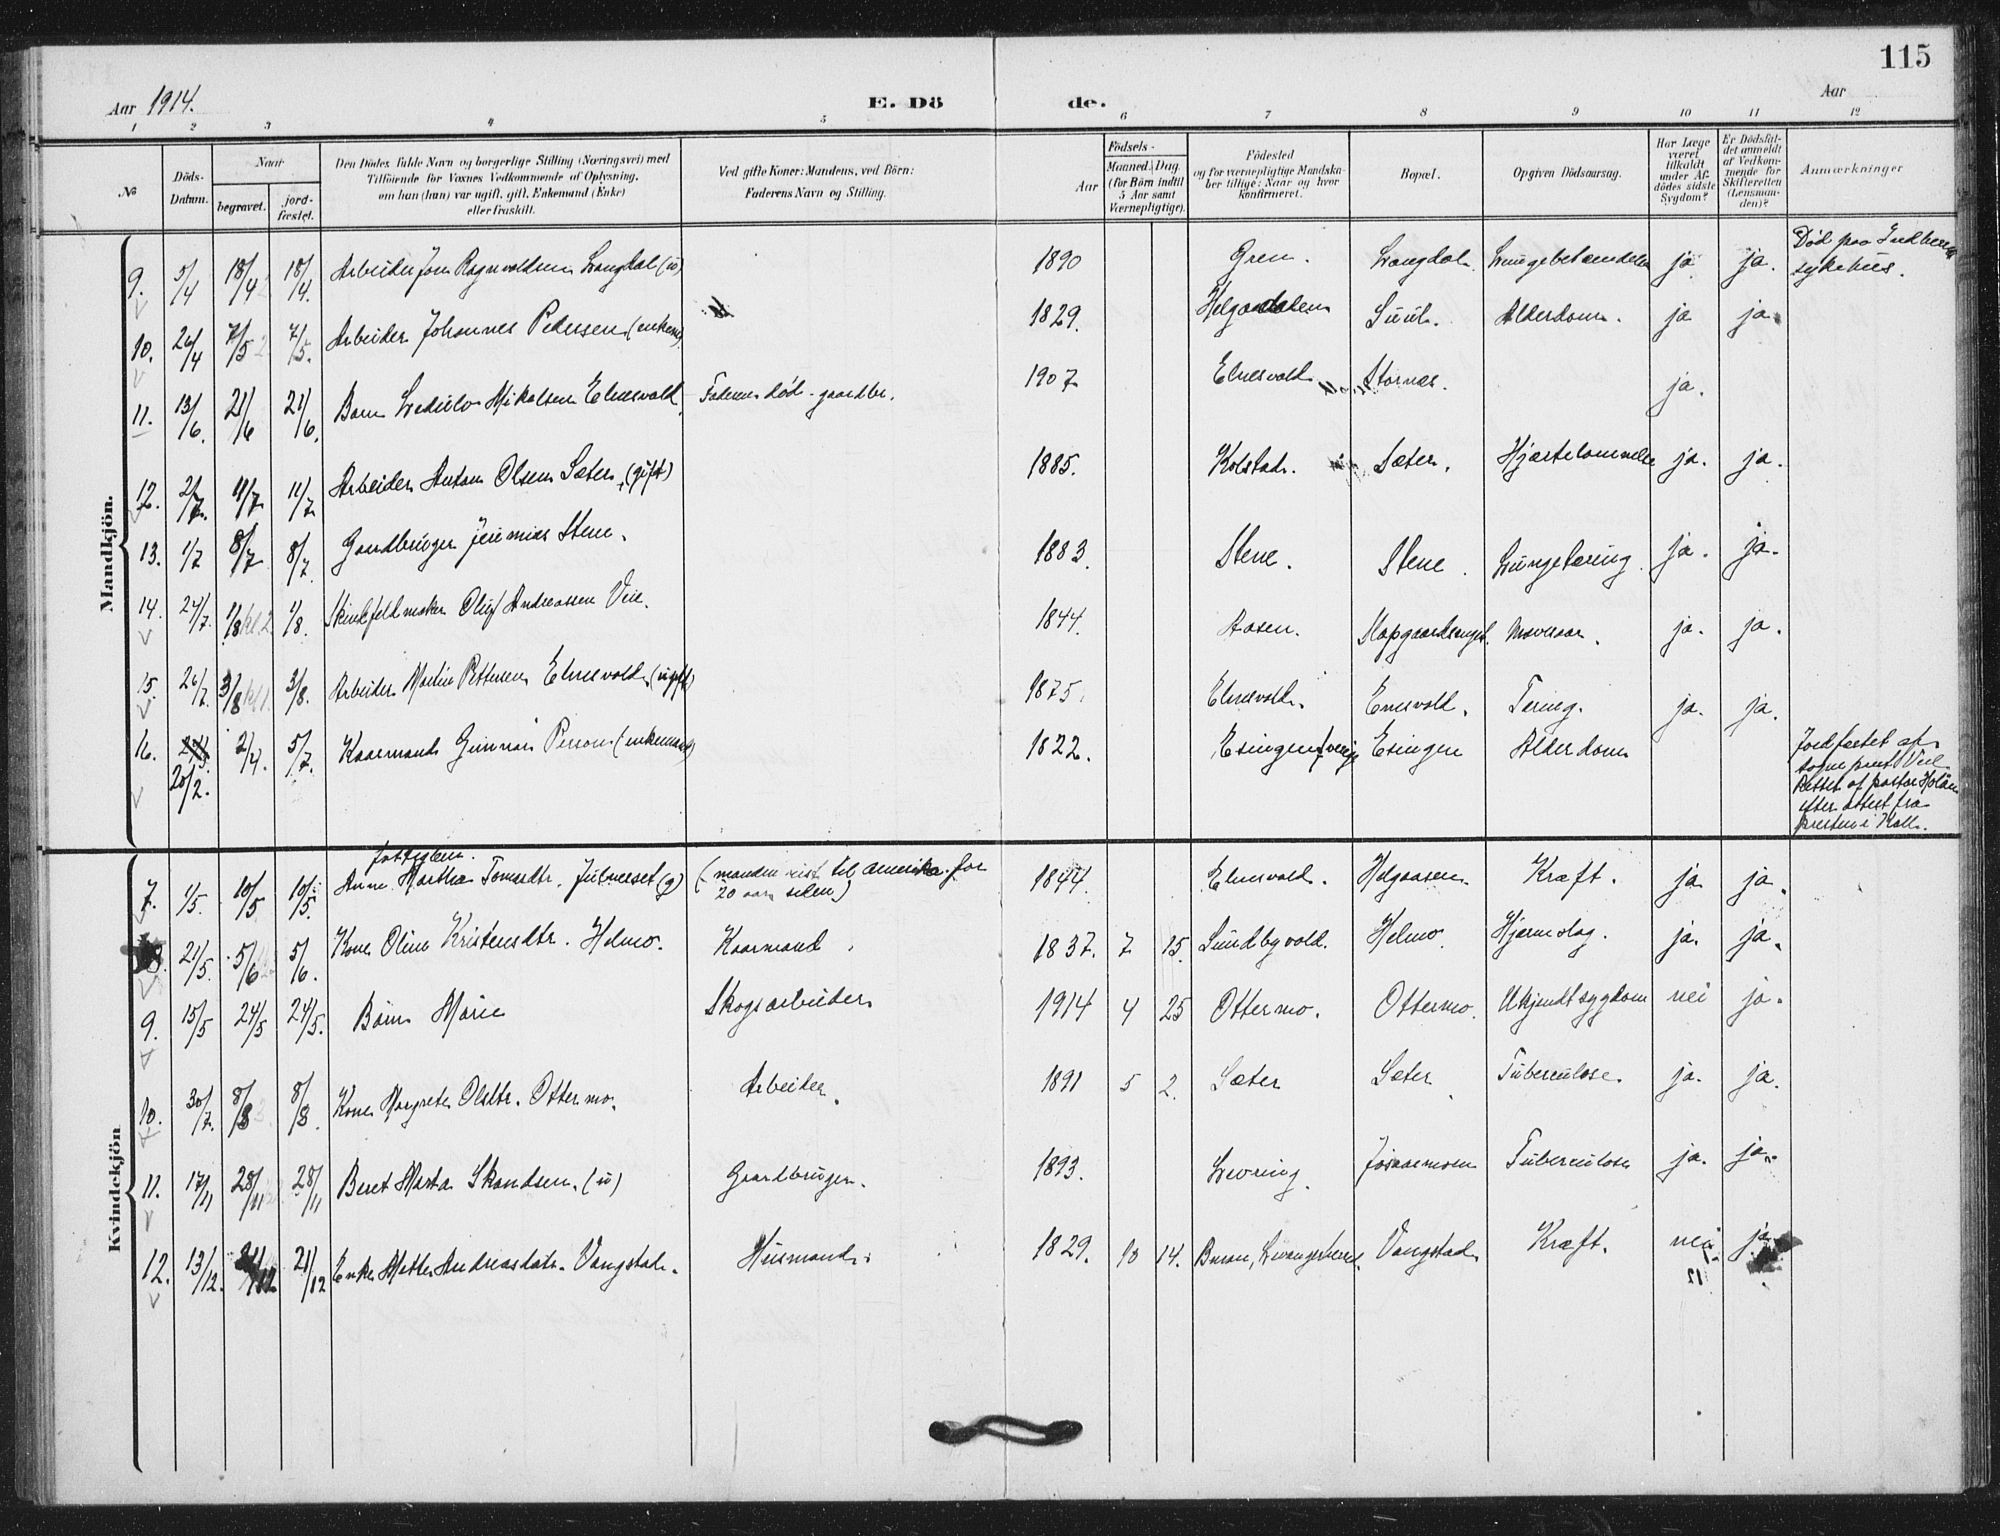 115
Aar 1914. E. Dö de. Aar
1 2 3 4 5 6 7 8 9 10 11 12
No
Döds-Datum.
Naar
begravet.
jordfæstet.
Den Dödes fulde Navn og borgerlige Stilling (Næringsvei) med
Tilföiende for Voxnes Vedkommende af Oplysning,
om han (hun) var ugift, gift, Enkemand (Enke)
eller fraskilt.
Ved gifte Koner: Mandens, ved Börn:
Faderens Navn og Stilling.
Födsels-
Aar
Maaned. Dag.
(for Börn indtil
5 Aar samt
Værnepligtige).
Födested
og for værnepligtige Mandskaber tillige: Naar og hvor
konfirmeret.
Bopæl.
Opgiven Dödsaarsag.
Har Læge
været
tilkaldt
under Afdödes sidste
Sygdom?
Er Dödsfaldet anmeldt
af Vedkommende for
Skifteretten
(Lensmanden)?
Anmærkninger
Mandkjön.
9. 5/4 18/4 18/4. Arbeider Jon Ragnvaldsen Langdal (u) 1890 Gren. Langdal Lungebetændelse ja ja. Død paa Indherred sykehus.
10. 26/4 7/5 7/5. Arbeider Johannes Pedersen (enkem) 1829. Helgaadalen Suul. Alderdom. ja ja.
11. 13/6. 21/6 21/6. Barn Ludvik Mikalsen Elnesvold Faderen død - gaardbr. 1907 Elnesvold Stornes. ja.
12. 2/7. 11/7 11/7 Arbeider Anton Olsen Sæter. (gift) 1885. Kolstad. Sæter. Hjertelammelse ja. ja.
13. 1/7 8/7 8/7. Gaardbruger Jeremias Stene. 1883. Stene. Stene. Lungetæring. ja. ja.
14. 24/7. 1/8 kl. 2 1/8. Skindfeldmaker Oluf Andreassen Veie. 1844. Aasen. Slapgaardsenget. ja. ja.
15. 26/7. 3/8 kl 1. 3/8. Arbeider Martin Pettersen Elnesvold (ugift) 1875. Elnesvold. Elnesvold. Tæring. ja. ja.
16. 20/2. 2/4. 5/7. Kaarmand Gunnar Person (enkemand) 1822. Esingen Sverige Esingen Alderdom Jordfæstet af sogneprest Veie Rettet af pastor efter attest fra presten i Kall.
Kvindekjön
7. 1/5. 10/5 10/5. fattiglem. Anne Martha Tomasdtr. Julneset (g) (manden reist til Amerika for 20 aar siden) 1844. Elnesvold. Helgaasen. Kræft. ja ja.
8. 21/5. 5/6 5/6. Kone Oline Kristensdtr. Helmo. Kaarmand 1837. 7 15. Sundbyvold. Helmo Hjerneslag. ja. ja.
9. 15/5 24/5 24/5. Barn Marie Skogsarbeider 1914 4 25 Ottermo. Ottermo. Ukjendt sygdom nei ja.
10. 30/7. 8/8 8/8. Kone Margrete Olsdtr. Ottermo. Arbeider. 1891 5 2. Sæter Sæter Tuberculose. ja. ja.
11. 17/11 28/11 28/11 Beret Marta Skandsen. (u) Gaardbruger. 1893. Levring. Tuberculose ja. ja.
12. 13/12. 21/12 21/12 Enke Mette Andreasdatr. Vangstad. Husmand. 1829. 10 14. Vangstad Kræft. nei ja